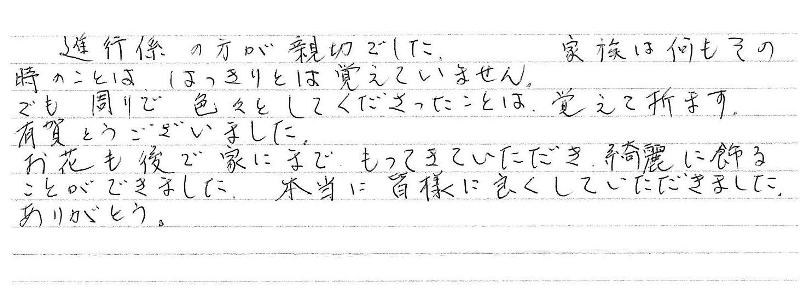 進行係の方が親切でした。 家族は何もその
時のことは はっきりとは覚えていません。
でも 周りで 色々としてくださったことは、覚えて折ます。
有賀とうございました。
お花も後で家にまで、もってきていただき、綺麗に飾る
ことができました。 本当に皆様に良くしていただきました。
ありがとう。